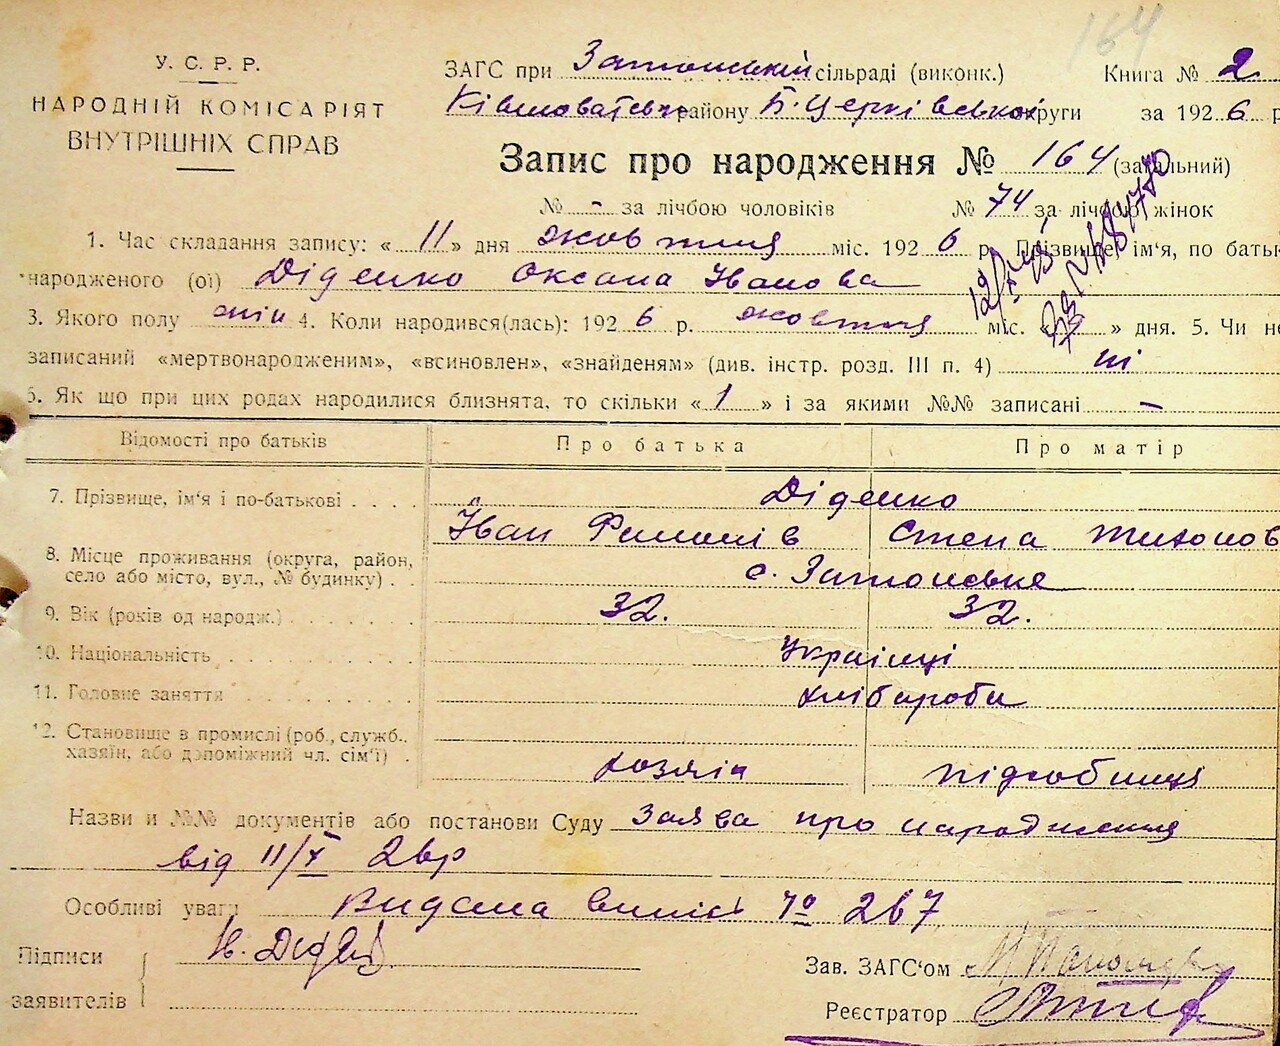 164
У. С. Р. Р.
НАРОДНІЙ КОМІСАРІЯТ
ВНУТРІШНІХ СПРАВ
ЗАГС при Затонській сільраді (виконк.) Книга № 2
району Б. Церківської округи за 1926 р
Запис про народження № 164 (загальний)
№ - за лічбою чоловіків № 74 за лічбою жінок
1. Час складання запису: « 11 » дня жовтня міс. 1926 р. Прізвище, ім'я, по бать
народженого (ої) Діденко Оксана Іванова
3. Якого полу жін 4. Коли народився(лась): 1926 р. жовтня міс. » дня. 5. Чи не
записаний «мертвонародженим», «всиновлен», «знайденям» (див. інстр. розд. III п. 4) ні
6. Як що при цих родах народилися близнята, то скільки « 1 » і за якими №№ записані –
Відомості про батьків Про батька Про матір
7. Прізвище, ім'я і по-батькові Діденко
Іван Степа Тихонов
8. Місце проживання (округа, район,
село або місто, вул., № будинку) с. Затонське
9. Вік (років од народж.) 32. 32.
10. Національність Українці
11. Головне заняття хлібароби
12. Становище в промислі (роб., служб.,
хазяїн, або допоміжний чл. сім'ї)
хозяін підсобниця
Назви и №№ документів або постанови Суду Заява про народження
від 11/X 26р
Особливі уваги Видана випись № 267
Підписи
заявителів
Зав. ЗАГС'ом
Реєстратор